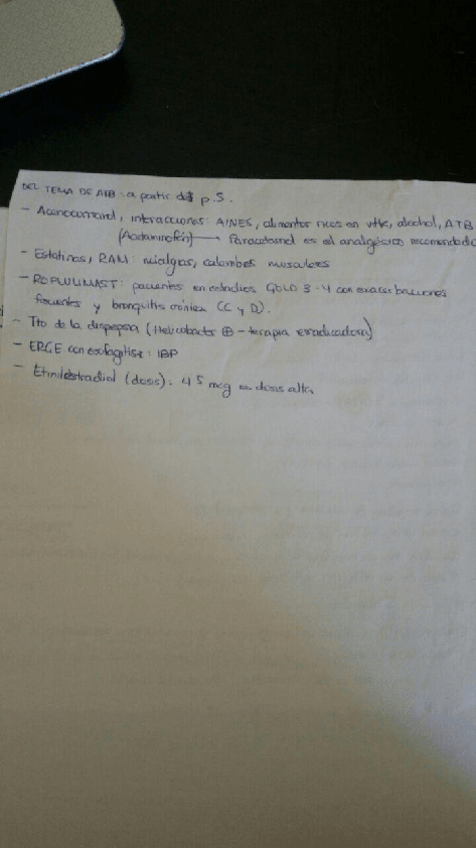 DEL TEMA DE ATB: a partir de p.5.
- Acenocumarol, interacciones: AINES, alimentos ricos en vitK, alcohol, ATB
(Acetaminofén) → Paracetamol es el analgésico recomendado
- Estatinas, RAM: mialgias, calambres musculares
- ROFLUMILAST: pacientes en estadios GOLD 3-4 con exacerbaciones
frecuentes y bronquitis crónica (C y D).
- Tto de la dispepsia (Helicobacter ⊕ - terapia erradicadora)
- ERGE con esofagitis: IBP
- Etinilestradiol (dosis): 45 mcg es dosis alta